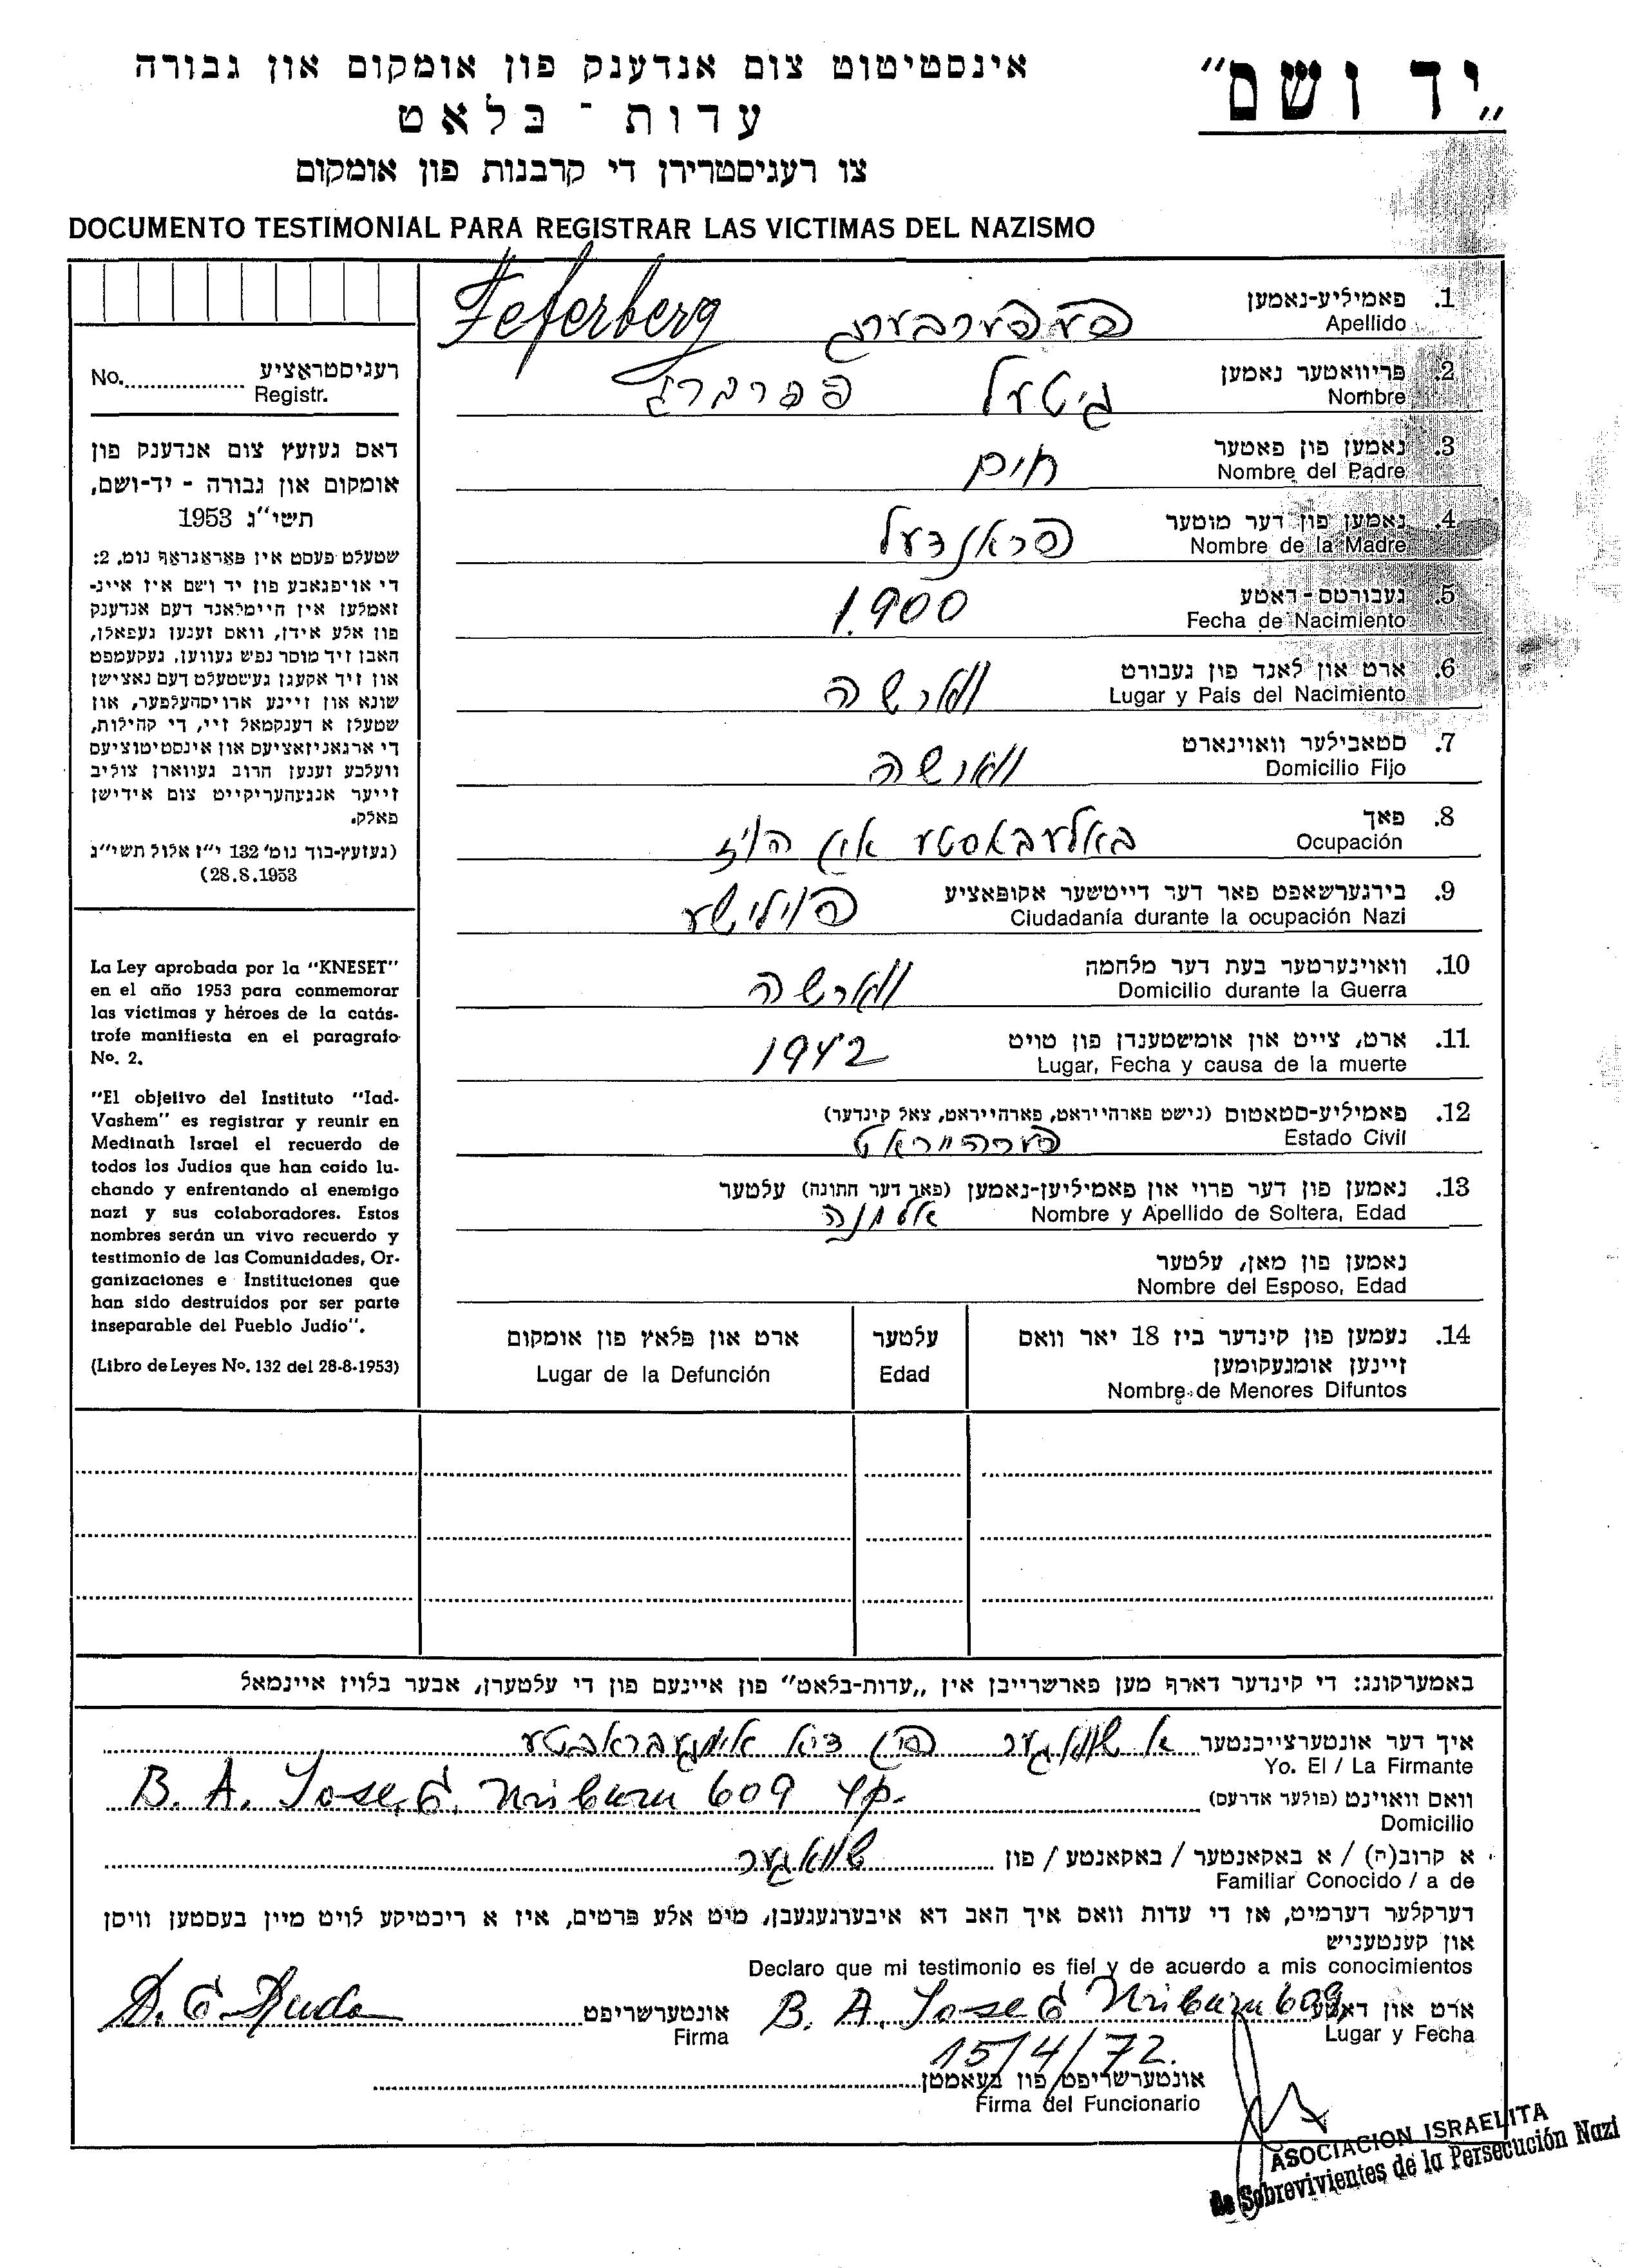 „יד ושם"
אינסטיטוט צום אנדענק פון אומקום און גבורה
עדות-בלאט
צו רעגיסטרירן די קרבנות פון אומקום
DOCUMENTO TESTIMONIAL PARA REGISTRAR LAS VICTIMAS DEL NAZISMO
רעגיסטראציע No.
Registr.
דאס געזעץ צום אנדענק פון
אומקום און גבורה - יד-ושם,
תשי"ג 1953
שטעלט פעסט אין פאראגראף נומ. 2:
די אויפגאבע פון יד ושם איז איינ-
זאמלען אין היימלאנד דעם אנדענק
פון אלע אידן, וואס זענען געפאלן,
האבן זיך מוסר נפש געווען, געקעמפט
און זיך אקעגן געשטעלט דעם נאצישן
שונא און זיינע ארויסהעלפער, און
שטעלן א דענקמאל זיי, די קהילות,
די ארגאניזאציעס און אינסטיטוציעס
וועלכע זענען חרוב געווארן צוליב
זייער אנגעהעריקייט צום אידישן
פאלק.
(געזעץ-בוך נומ' 132 י"ז אלול תשי"ג
28.8.1953)
La Ley aprobada por la "KNESET"
en el año 1953 para conmemorar
las víctimas y héroes de la catás-
trofe manifiesta en el paragrafo
No. 2.
"El objetivo del Instituto "Iad-
Vashem" es registrar y reunir en
Medinath Israel el recuerdo de
todos los Judíos que han caído lu-
chando y enfrentando al enemigo
nazi y sus colaboradores. Estos
nombres serán un vivo recuerdo y
testimonio de las Comunidades, Or-
ganizaciones e Instituciones que
han sido destruidos por ser parte
inseparable del Pueblo Judío".
(Libro de Leyes No. 132 del 28-8-1953)
1. פאמיליע-נאמען פעפערבערג Feferberg
Apellido
2. פריוואטער נאמען גיטעל פפרברג
Nombre
3. נאמען פון פאטער חיים
Nombre del Padre
4. נאמען פון דער מוטער פראנדעל
Nombre de la Madre
5. געבורטס-דאטע 1.900
Fecha de Nacimiento
6. ארט און לאנד פון געבורט ווארשה
Lugar y País del Nacimiento
7. סטאבילער וואוינארט ווארשה
Domicilio Fijo
8. פאך באלעבאסטע אין הויז
Ocupación
9. בירגערשאפט פאר דער דייטשער אקופאציע פוילישע
Ciudadanía durante la ocupación Nazi
10. וואוינערטער בעת דער מלחמה ווארשה
Domicilio durante la Guerra
11. ארט, צייט און אומשטענדן פון טויט 1942
Lugar, Fecha y causa de la muerte
12. פאמיליע-סטאטוס (נישט פארהייראט, פארהייראט, צאל קינדער)
Estado Civil פערהייראט
13. נאמען פון דער פרוי און פאמיליען-נאמען (פאר דער חתונה) עלטער
Nombre y Apellido de Soltera, Edad אלמנה
נאמען פון מאן, עלטער
Nombre del Esposo, Edad
14. נעמען פון קינדער ביז 18 יאר וואס עלטער ארט און פלאץ פון אומקום
זיינען אומגעקומען
Nombre de Menores Difuntos Edad Lugar de la Defunción
באמערקונג: די קינדער דארף מען פארשרייבן אין „עדות-בלאט" פון איינעם פון די עלטערן, אבער בלויז איינמאל
איך דער אונטערצייכנטער א שוואגער פון דיא אומגבראכטע
Yo. El / La Firmante
וואס וואוינט (פולער אדרעס) B. A. Jose E. Uriburu 609 4p.
Domicilio
א קרוב(ה) / א באקאנטער / באקאנטע / פון שוואגער
Familiar Conocido / a de
דערקלער דערמיט, אז די עדות וואס איך האב דא איבערגעגעבן, מיט אלע פרטים, איז א ריכטיקע לויט מיין בעסטען וויסן
און קענטעניש
Declaro que mi testimonio es fiel y de acuerdo a mis conocimientos
ארט און דאטע B. A. Jose E Uriburu 609 אונטערשריפט
Lugar y Fecha 15/4/72. Firma
אונטערשריפט פון בעאמטן
Firma del Funcionario
ASOCIACION ISRAELITA
de Sobrevivientes de la Persecución Nazi